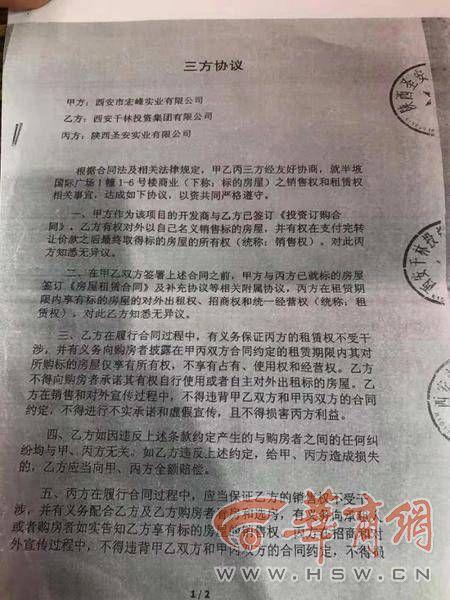 三方协议
甲方：西安市宏峰实业有限公司
乙方：西安千林投资集团有限公司
丙方：陕西圣安实业有限公司
根据合同法及相关法律规定，甲乙丙三方经友好协商，就半坡
国际广场1幢1-6号楼商业（下称：标的房屋）之销售权和租赁权
相关事宜，达成如下协议，以资共同严格遵守。
一、甲方作为该项目的开发商与乙方已签订《投资订购合
同》，乙方有权对外以自己名义销售标的房屋，并有权在支付完转
让价款之后最终取得标的房屋的所有权（统称：销售权）。对此丙
方知悉无异议。
二、在甲乙双方签署上述合同之前，甲方与丙方已就标的房屋
签订《房屋租赁合同》及补充协议等相关附属协议，丙方在租赁期
限内享有标的房屋的对外出租权、招商权和统一经营权（统称：租
赁权），对此乙方知悉无异议。
三、乙方在履行合同过程中，有义务保证丙方的租赁权不受干
涉，并有义务向购房者披露在甲丙双方合同约定的租赁期限内其对
所购标的房屋仅享有所有权，不享有占有、使用权和经营权。乙方
不得向购房者承诺其有权自行使用或者自主对外出租标的房屋。乙
方在销售和对外宣传过程中，不得违背甲乙双方和甲丙双方的合同
约定，不得进行不实承诺和虚假宣传，且不得损害丙方利益。
四、乙方如因违反上述条款约定产生的与购房者之间的任何纠
纷均与甲、丙方无关，如乙方违反上述约定，给甲、丙方造成损失
的，乙方应当向甲、丙方全额赔偿。
五、丙方在履行合同过程中，应当保证乙方的销售权不受干
涉，并有义务配合乙方及乙方购房者看房和选房，有义务向承租人
或者购房者如实告知乙方享有标的房屋的销售权。丙方在招商和对
外宣传过程中，不得违背甲乙双方和甲丙双方的合同约定，不得损
1 / 2
陕西圣安
西安千林投
西安
华商網
WWW.HSW.CN